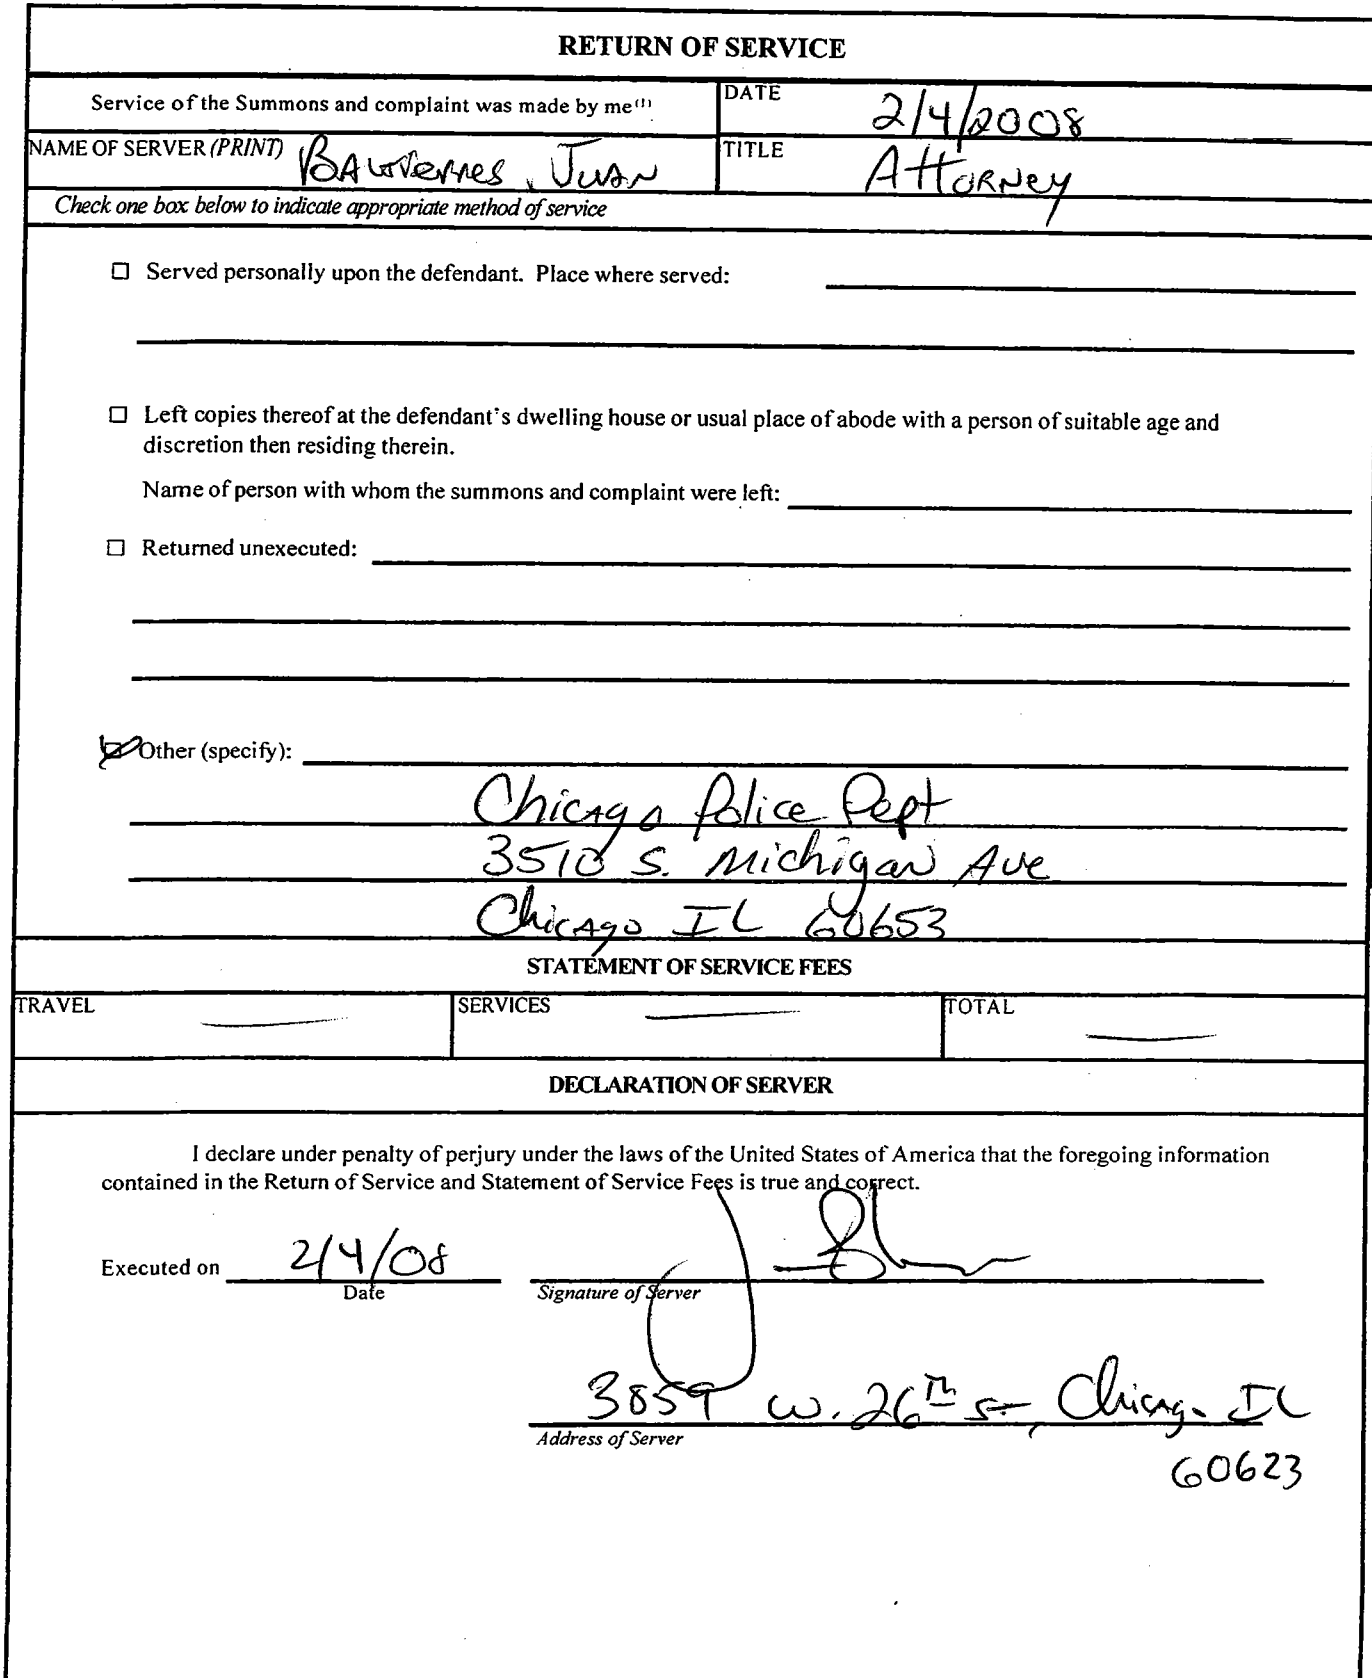 RETURN OF SERVICE
Service of the Summons and complaint was made by me(1)
DATE
2/4/2008
NAME OF SERVER (PRINT)
Juan
TITLE
Attorney
Check one box below to indicate appropriate method of service
☐ Served personally upon the defendant. Place where served:
☐ Left copies thereof at the defendant's dwelling house or usual place of abode with a person of suitable age and
discretion then residing therein.
Name of person with whom the summons and complaint were left:
☐ Returned unexecuted:
☑ Other (specify):
Chicago Police Dept
3510 S. Michigan Ave
Chicago IL 60653
STATEMENT OF SERVICE FEES
TRAVEL
SERVICES
TOTAL
DECLARATION OF SERVER
I declare under penalty of perjury under the laws of the United States of America that the foregoing information
contained in the Return of Service and Statement of Service Fees is true and correct.
Executed on 2/4/08
Date
Signature of Server
3859 W. 26th St, Chicago IL
Address of Server
60623